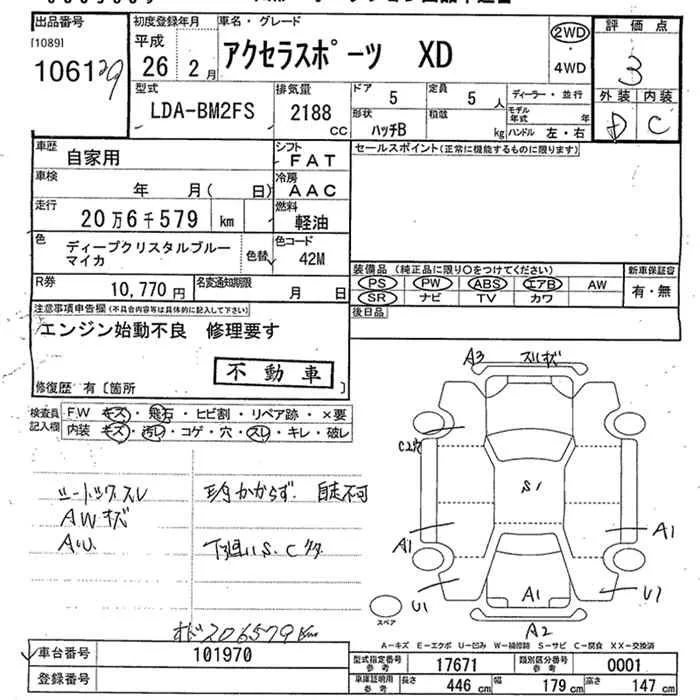 出品番号
[1089]
106129
初度登録年月
平成
26 2月
車名・グレード
アクセラスポーツ XD
2WD
4WD
評価点
3
外装 内装
D C
型式
LDA-BM2FS
排気量
2188 CC
ドア 5
定員 5人
形状 ハッチB
積載 kg
ディーラー・並行
モデル年式 年
ハンドル 左・右
車歴 自家用
シフト FAT
車検 年 月( 日)
冷房 AAC
走行 20万6千579 km
燃料 軽油
色 ディープクリスタルブルーマイカ
色替
色コード 42M
R券 10,770円
名変通知期限 月 日
セールスポイント(正常に機能するものに限ります)
装備品(純正品に限り○をつけてください)
PS PW ABS エアB AW
SR ナビ TV カワ
新車保証書
有・無
後日品
注意事項申告欄(不具合内容等は具体的に記入して下さい)
エンジン始動不良 修理要す
不動車
修復歴 有[箇所 ]
検査員記入欄
F.W キズ・飛石・ヒビ割・リペア跡・×要
内装 キズ・汚レ・コゲ・穴・スレ・キレ・破レ
シートックスレ
AWキズ
AU
自走不可
下廻りS.C
オド206579km
A3
スリキズ
C2穴
S1
A1
A1
A1
U1
U1
A2
スペア
A-キズ E-エクボ U-凹み W-補修跡 S-サビ C-腐食 XX-交換済
車台番号 101970
登録番号
型式指定番号参考 17671
類別区分番号参考 0001
車庫証明用参考 長さ 446cm 幅 179cm 高さ 147cm